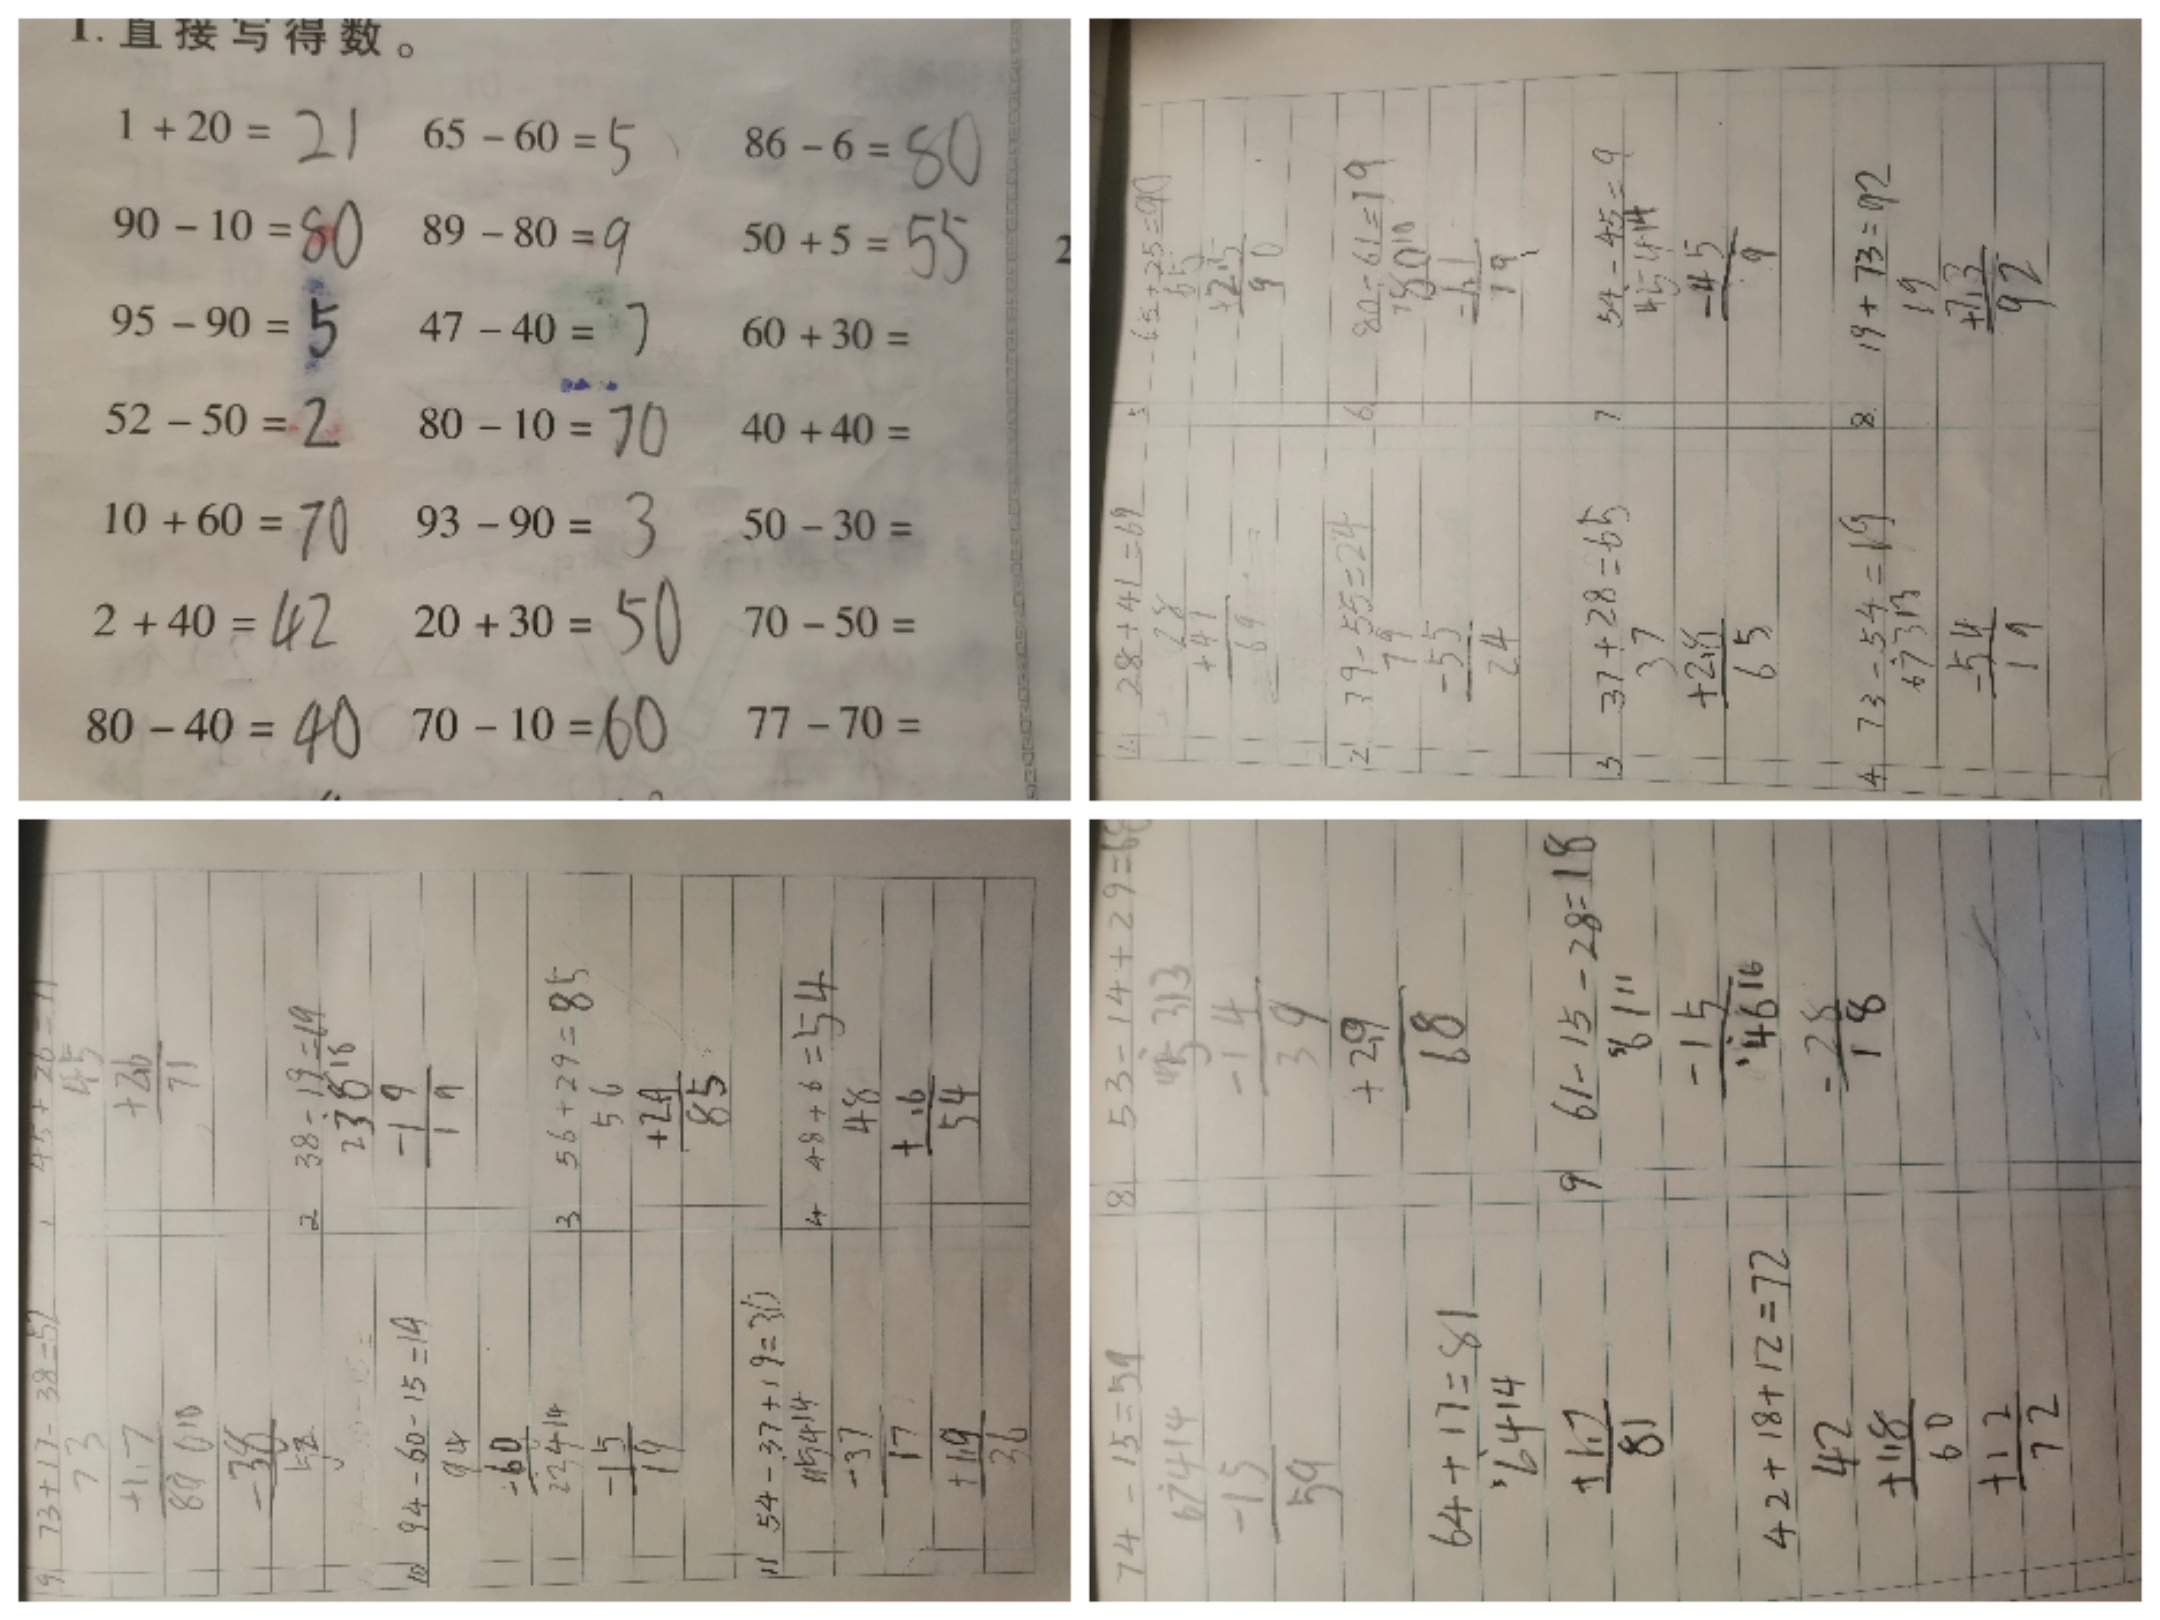 1. 直接写得数。
1 + 20 = 21 65 - 60 = 5 86 - 6 = 80
90 - 10 = 80 89 - 80 = 9 50 + 5 = 55
95 - 90 = 5 47 - 40 = 7 60 + 30 =
52 - 50 = 2 80 - 10 = 70 40 + 40 =
10 + 60 = 70 93 - 90 = 3 50 - 30 =
2 + 40 = 42 20 + 30 = 50 70 - 50 =
80 - 40 = 40 70 - 10 = 60 77 - 70 =
2
1. 28+41=69
28
+41
69
2 79-55=24
79
-55
24
3 37+28=65
37
+28
65
4 73-54=19
67313
-54
19
5 65+25=90
65
+25
90
6 80-61=19
78010
-61
19
7 54-45=9
45414
-45
9
8 19+73=92
19
+73
92
9 73+17-38=52
73
+17
-38
52
10 94-60-15=19
94
-60
23414
-15
19
11 54-37+19=36
45414
-37
17
+19
36
1 45+26=71
45
+26
71
2 38-19=19
23818
-19
19
3 56+29=85
56
+29
85
4 48+6=54
48
+6
54
74-15=59
67414
-15
59
64+17=81
6414
+17
81
42+18+12=72
42
+18
60
+12
72
8 53-14+29=68
45313
-14
39
+29
68
9 61-15-28=18
6111
-15
4616
-28
18